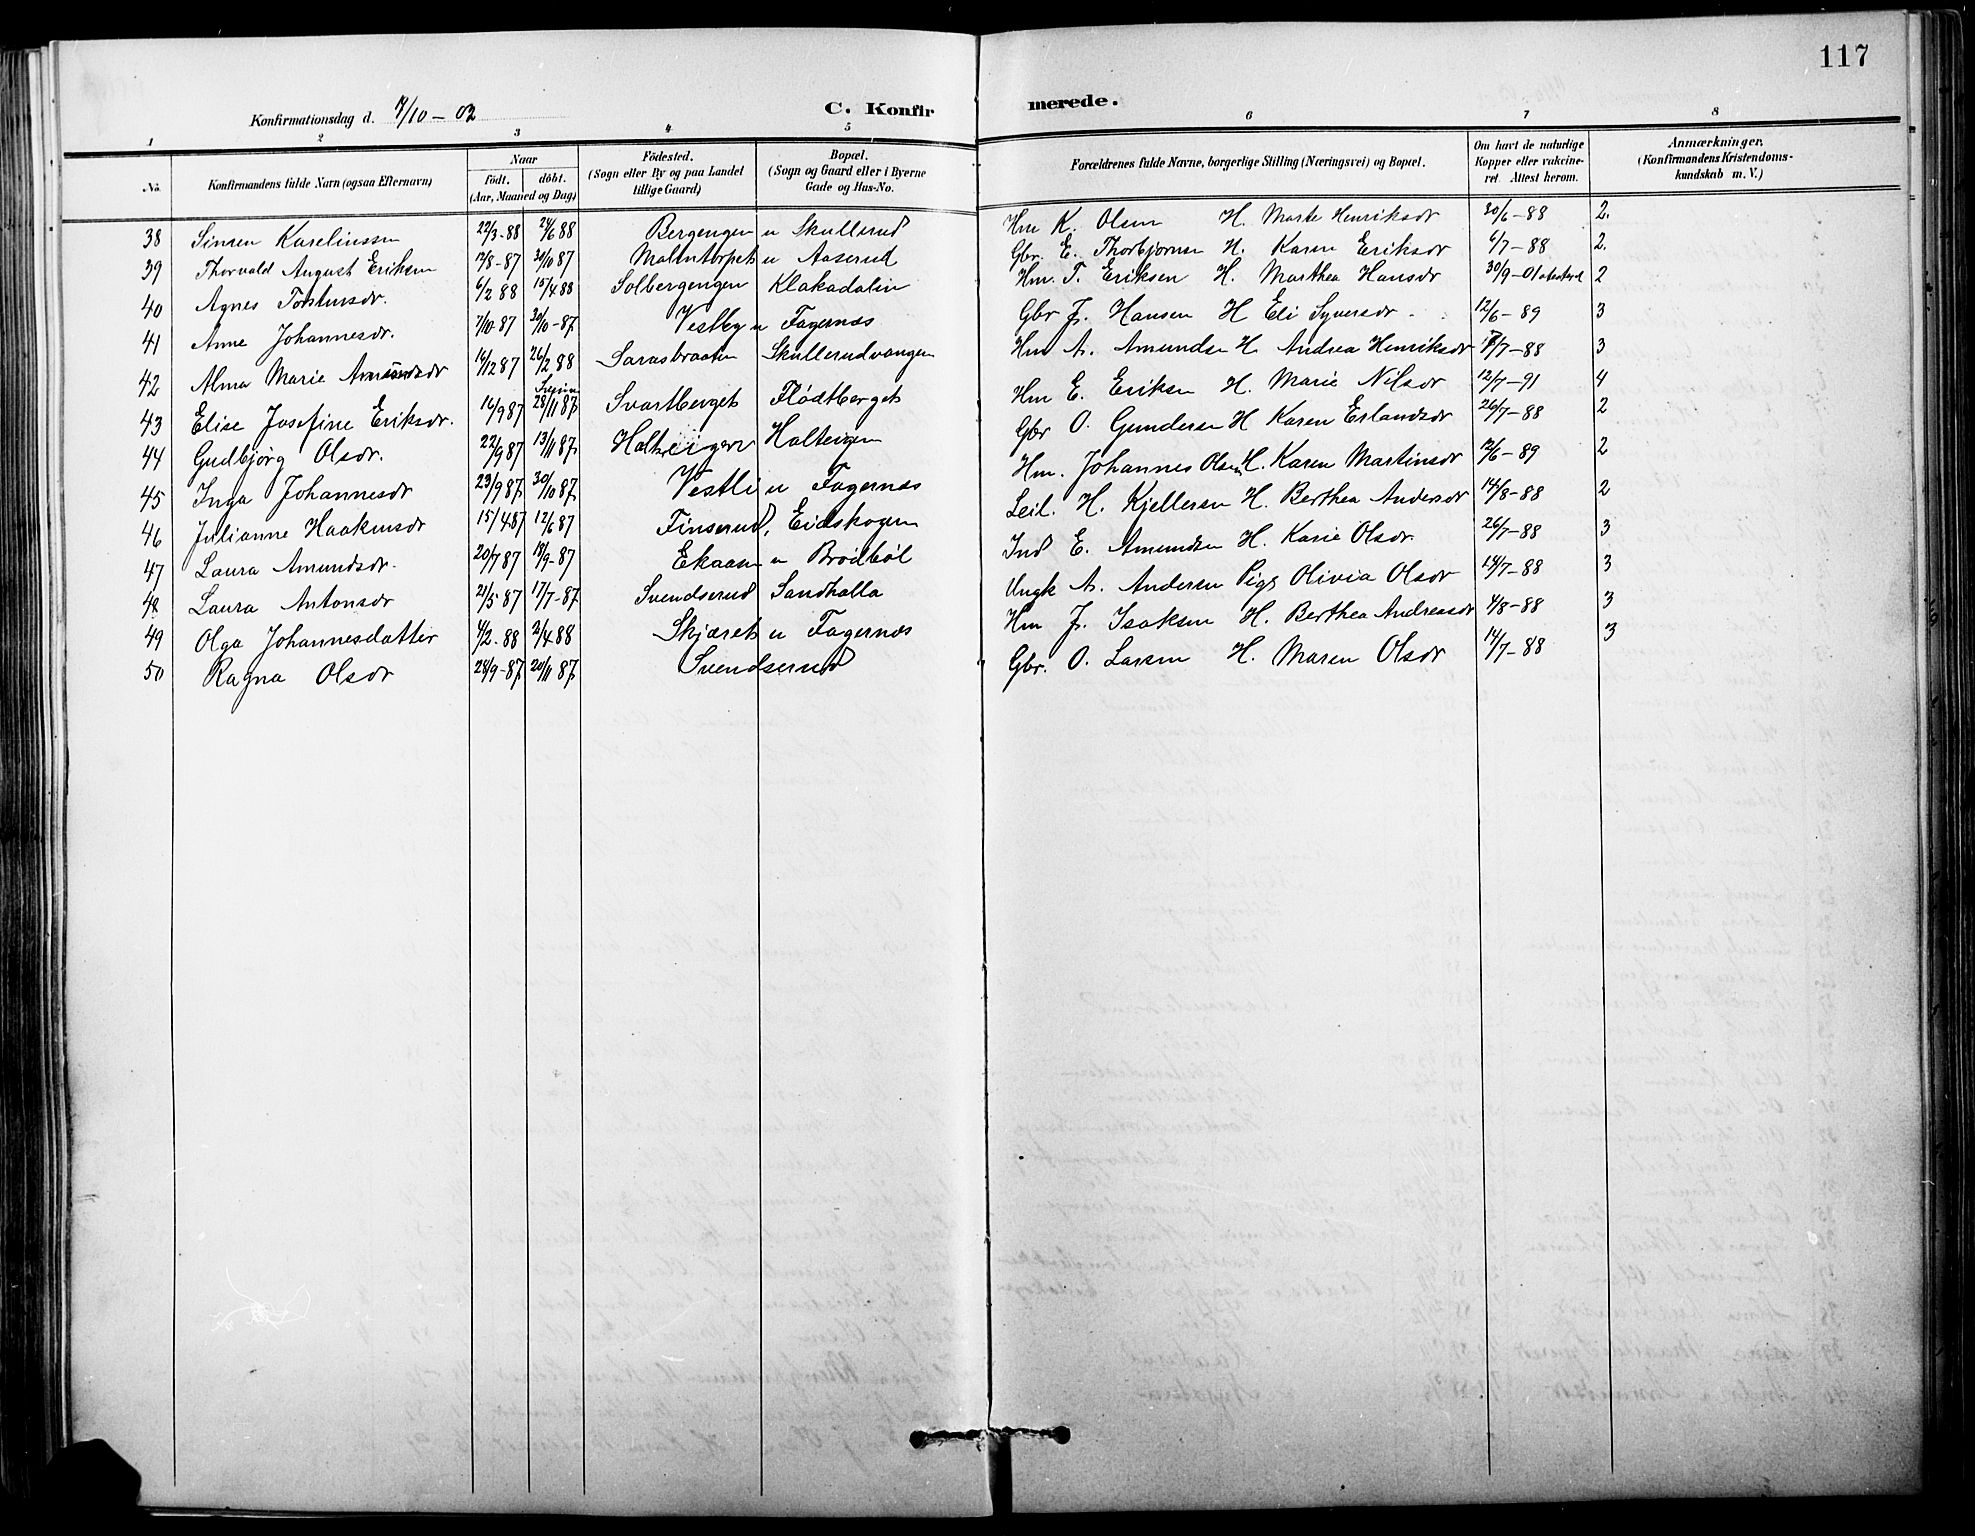 117
Konfirmationsdag d. 7/10 - 02
C. Konfirmerede.
1 2 3 4 5 6 7 8
No. Konfirmandens fulde Navn (ogsaa Efternavn) Naar födt. döbt. (Aar, Maaned og Dag) Födested. (Sogn eller By og paa Landet tillige Gaard) Bopæl. (Sogn og Gaard eller i Byerne Gade og Hus-No. Forældrenes fulde Navne, borgerlige Stilling (Næringsvei) og Bopæl. Om havt de naturlige Kopper eller vakcineret. Attest herom. Anmærkninger. (Konfirmandens Kristendomskundskab m. V.)
38 Simen Karelinssen 22/3-88 24/6 88 Bergengen u Skullerud Hm K. Olsen H. Marte Henriksdr 30/6-88 2.
39 Thorvald August Eriksen 12/8-87 30/10 87 Malmtorpet u Aaserud Gbr. E. Thorbjørnsen H. Karen Eriksdr 6/7-88 2.
40 Agnes Torstensdr. 6/2 88 15/4 88 Solbergengen Klakadalen Hm. T. Eriksen H. Marthea Hansdr 30/9-01 2
41 Anne Johannesdr. 7/10-87 30/10-87 Vestby u Fagernæs Gbr J. Hansen H Eli Syversdr 12/6-89 3
42 Alma Marie Amundsdr 16/12 87 26/2 88 Sarasbraaten Skullerudvangen Hm A. Amundsen H. Andrea Henriksdr /7-88 3
43 Elise Josefine Eriksdr. 16/9 87 28/11 87 Svartberget Flödtberget Hm E. Eriksen H. Marie Nilsdr 12/7-91 4
44 Gudbjörg Olsdr. 22/9 87 13/11 87 Holteigen Holteigen Gbr O. Gundersen H Karen Erlandsdr 26/7-88 2
45 Inga Johannesdr 23/9 87 30/10 87 Vestli u Fagernæs Hm. Johannes Olsen H. Karen Martinsdr 12/6-89 2
46 Julianne Haakensdr 15/4 87 12/6 87 Finserud, Eidskogen Leil. H. Kjellersen H. Berthea Andersdr 14/8-88 2
47 Laura Amundsdr. 20/7 87 18/9-87 Ekaasen u Brödböl Ind E. Amundsen H. Karie Olsdr. 26/7-88 3
48 Laura Antonsdr 21/5 87 17/7-87 Svendserud Sandhalla Ungk A. Andersen Pige Olivia Olsdr 14/7-88 3
49 Olga Johannesdatter 4/2-88 2/4 88 Skjæret u Fagernæs Hm J. Isaksen H. Berthea Andreasdr 4/8-88 3
50 Ragna Olsdr 24/9-87 20/11 87 Svendserud Gbr. O. Larsen H. Maren Olsdr 14/7-88 3